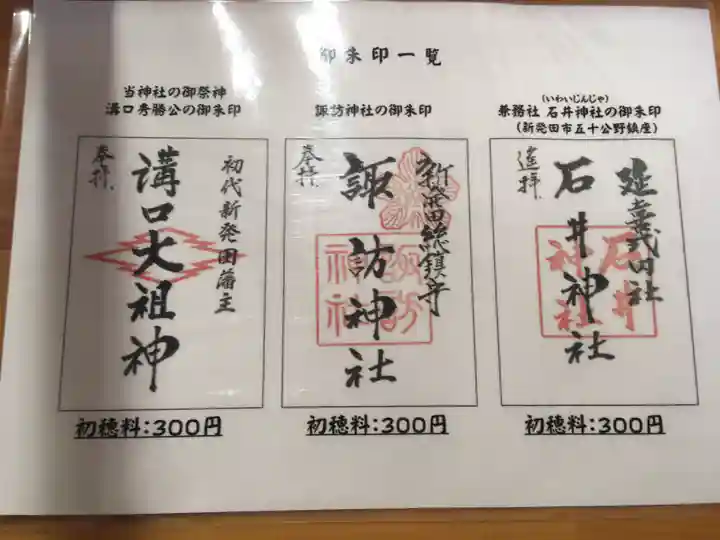 御朱印一覧
当神社の御祭神
溝口秀勝公の御朱印
奉拝
溝口大祖神
初代新発田藩主
初穂料:300円
諏訪神社の御朱印
奉拝
諏訪神社
新發田総鎮守
諏訪
神社
初穂料:300円
(いわいじんじゃ)
兼務社 石井神社の御朱印
(新発田市五十公野鎮座)
遙拝
石井神社
延喜式内社
石井
神社
初穂料:300円